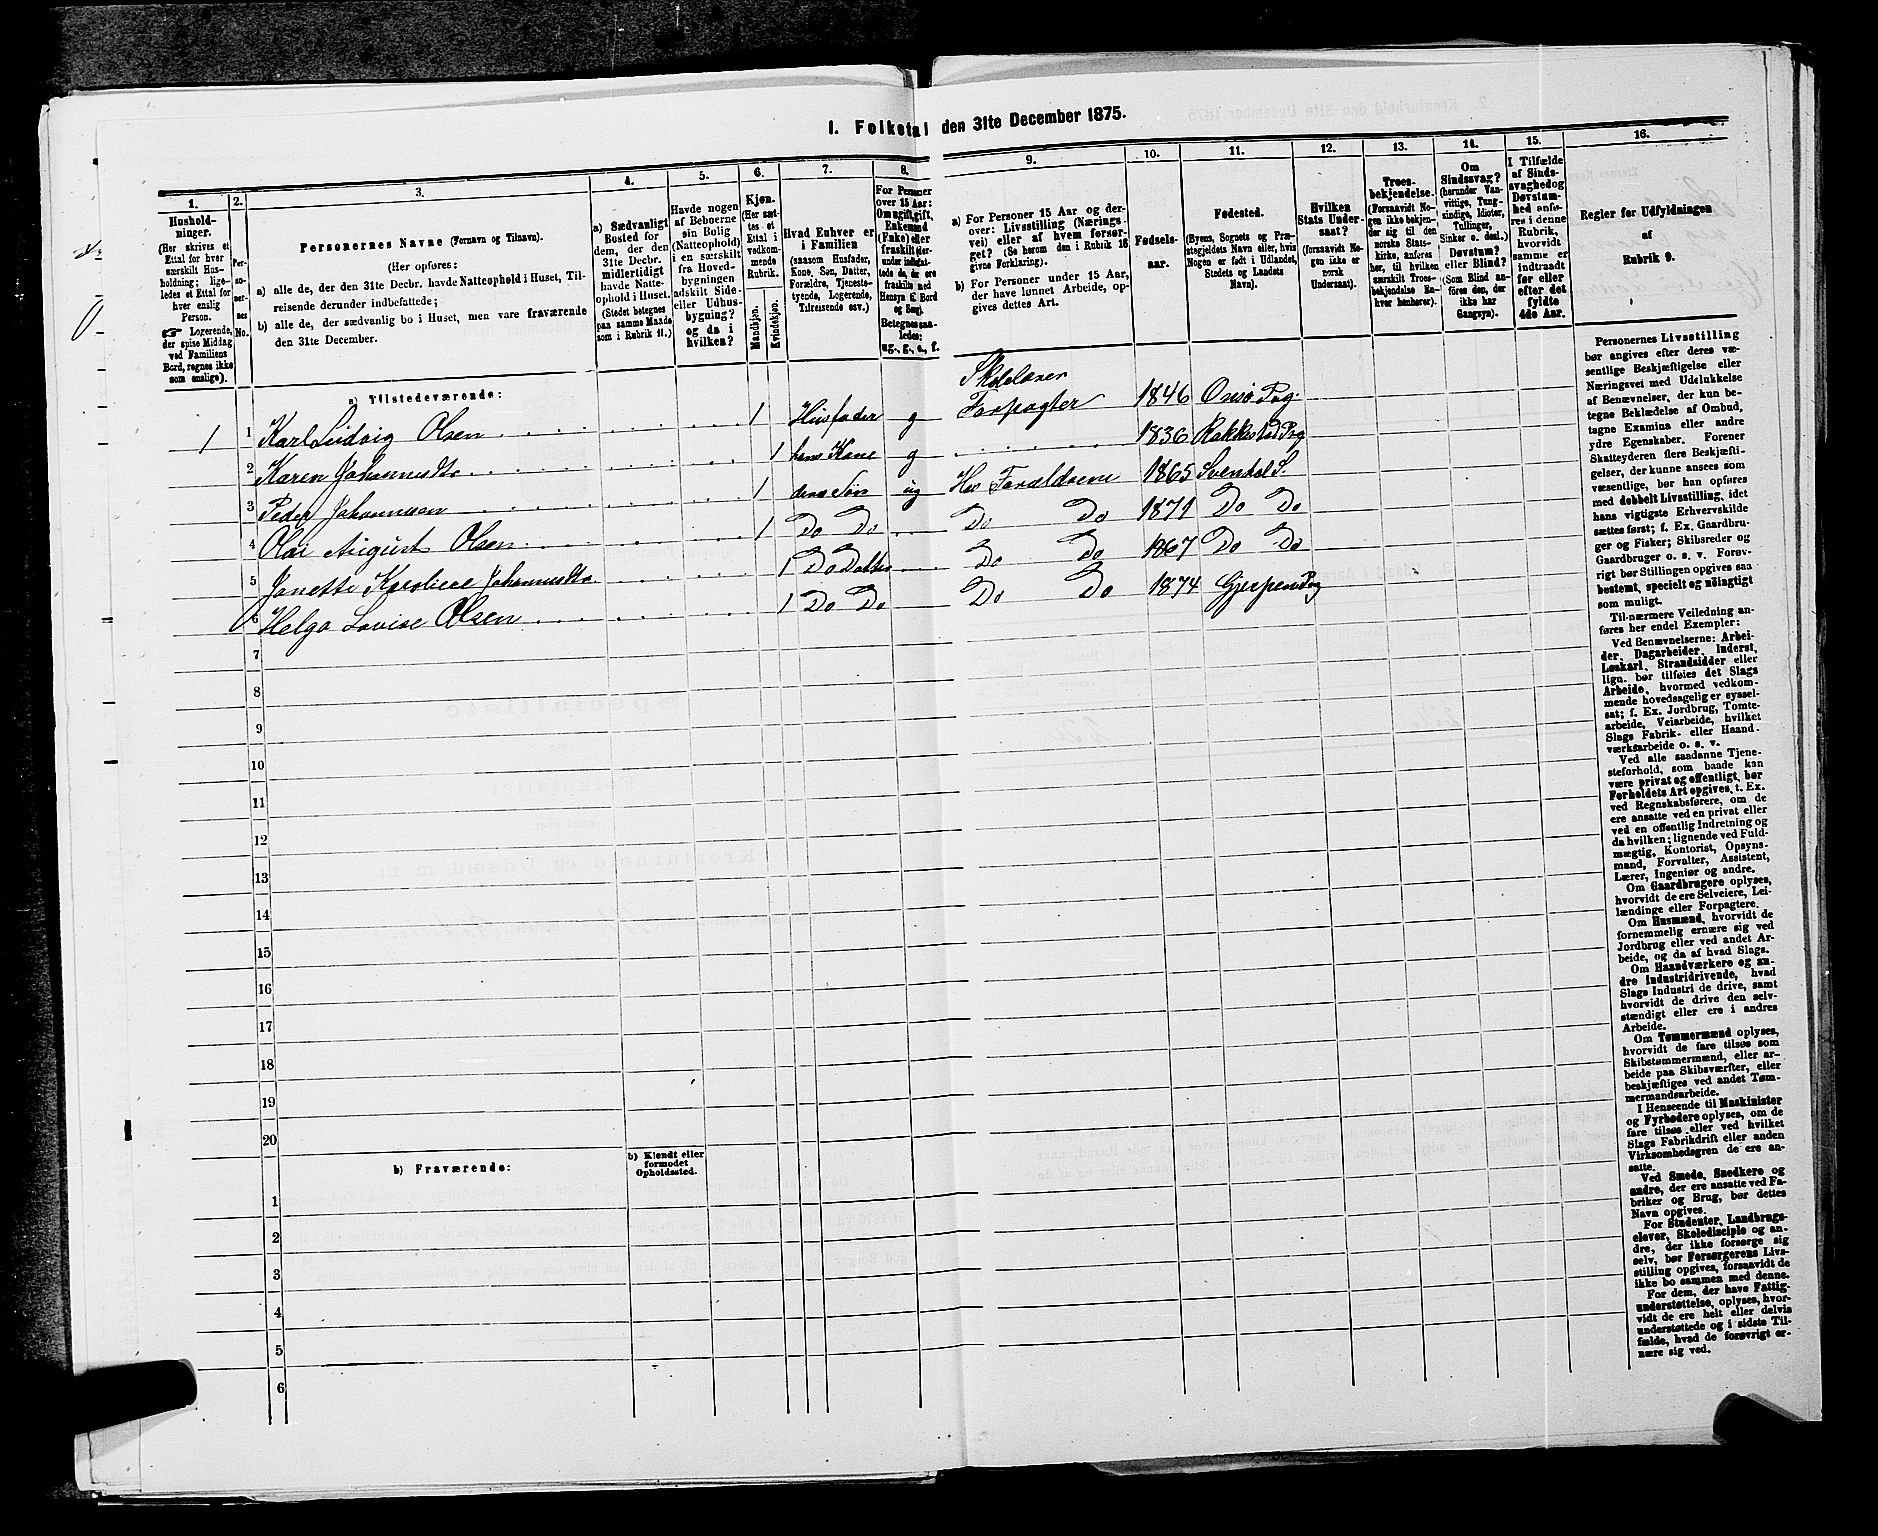 I. Folketal den 31te December 1875.
1.
Hushold-
ninger.
(Her skrives et
Ettal for hver
særskilt Hus-
holdning; lige-
ledes et Ettal for
hver enslig
Person.
☞ Logerende,
der spise Middag
ved Familiens
Bord, regnes ikke
som enslige).
2.
Per-
soner-
nes
No.
3.
Personernes Navne (Fornavn og Tilnavn).
(Her opføres:
a) alle de, der den 31te Decbr. havde Natteophold i Huset, Til-
reisende derunder indbefattede;
b) alle de, der sædvanlig bo i Huset, men vare fraværende
den 31te December.
4.
a) Sædvanligt
Bosted for
dem, der den
31te Decbr.
midlertidigt
havde Natte-
ophold i Huset.
(Stedet betegnes
paa samme Maade
som i Rubrik 11.)
5.
Havde nogen
af Beboerne
sin Bolig
(Natteophold)
i en særskilt
fra Hoved-
bygningen
adskilt Side-
eller Udhus-
bygning?
og da i
hvilken?
6.
Kjøn.
(Her sæt-
tes et
Ettal i
vedkom-
mende
Rubrik.
Mandkjøn.
Kvindekjøn.
7.
Hvad Enhver er
i Familien
(saasom Husfader,
Kone, Søn, Datter,
Forældre, Tjeneste-
tyende, Logerende,
Tilreisende osv.)
8.
For Personer
over 15 Aar:
Om ugift, gift,
Enkemand
(Enke) eller
fraskilt
Betegnes saa-
ledes:
ug., g., e., f.
9.
a) For Personer 15 Aar og der-
over: Livsstilling (Nærings-
vei) eller af hvem forsør-
get? (Se herom den i Rubrik 16
givne Forklaring).
b) For Personer under 15 Aar,
der have lønnet Arbeide, op-
gives dettes Art.
10.
Fødsels-
aar.
11.
Fødested.
(Byens, Sognets og Præ-
stegjeldets Navn eller, hvis
Nogen er født i Udlandet,
Stedets og Landets
Navn).
12.
Hvilken
Stats Under-
saat?
(forsaavidt No-
gen ikke er
norsk
Undersaat).
13.
Troes-
bekjendelse.
(Forsaavidt No-
gen ikke bekjen-
der sig til den
norske Stats-
kirke, anføres
her, til hvilken
særskilt Troes-
bekjendelse En-
hver henhører).
14.
Om
Sindssvag?
(herunder Van-
vittige, Tung-
sindige, Idioter,
Tullinger,
Sinker o. desl.)
Døvstum?
eller Blind?
(Som Blind an-
føres den, der
ikke har
Gangsyn).
15.
I Tilfælde
af Sinds-
svaghed og
Døvstum-
hed anfø-
res i denne
Rubrik,
hvorvidt
samme er
indtraadt
før eller
efter det
fyldte
4de Aar.
16.
Regler for Udfyldningen
af
Rubrik 9.
a) Tilstedeværende:
1 1 Karl Ludvig Olsen 1 Husfader g Skolelærer Forpagter 1846 Onsø Pg.
2 Karen Johannesdtr 1 hans Kone g 1836 Rakkestad Prg
3 Peder Johannesen 1 deres Søn ug Hos Forældrene 1865 Svendal S.
4 Olai August Olsen 1 Do Do Do Do 1871 Do Do
5 Janette Karoliene Johannesdtr 1 Do Datter Do Do 1867 Do Do
6 Helga Lovise Olsen 1 Do Do Do Do 1874 Gjerpen Prg
7
8
9
10
11
12
13
14
15
16
17
18
19
20
b) Fraværende:
b) Kjendt eller
formodet
Opholdssted.
1
2
3
4
5
6
Personernes Livsstilling
bør angives efter deres væ-
sentlige Beskjæftigelse eller
Næringsvei med Udelukkelse
af Benævnelser, der kun be-
tegne Beklædelse af Ombud,
tagne Examina eller andre
ydre Egenskaber. Forener
Skatteyderen flere Beskjæfti-
gelser, der kunne ansees som
væsentlige, bør han opføres
med dobbelt Livsstilling, idet
hans vigtigste Erhvervskilde
sættes først; f. Ex. Gaardbru-
ger og Fisker; Skibsreder og
Gaardbruger o. s. v. Forøv-
rigt bør Stillingen opgives saa
bestemt, specielt og nöiagtigt
som muligt.
Til nærmere Veiledning an-
føres her endel Exempler:
Ved Benævnelserne: Arbei-
der, Dagarbeider, Inderst,
Løskarl, Strandsidder eller
lign. bør tilføies det Slags
Arbeide, hvormed vedkom-
mende hovedsagelig er syssel-
sat; f. Ex. Jordbrug, Tomte-
arbeide, Veiarbeide, hvilket
Slags Fabrik- eller Haand-
værksarbeide o. s. v.
Ved alle saadanne Tjene-
steforhold, som baade kan
være privat og offentligt, bør
Forholdets Art opgives, t. Ex.
ved Regnskabsførere, om de
ere ansatte ved en privat eller
ved en offentlig Indretning og
da hvilken; lignende ved Fuld-
mægtig, Kontorist, Opsyns-
mand, Forvalter, Assistent,
Lærer, Ingeniør og andre.
Om Gaardbrugere oplyses,
hvorvidt de ere Selveiere, Lei-
lændinge eller Forpagtere.
Om Husmænd, hvorvidt de
fornemmelig ernære sig ved
Jordbrug eller ved andet Ar-
beide, og da af hvad Slags.
Om Haandværkere og an-
dre Industridrivende, hvad
Slags Industri de drive, samt
hvorvidt de drive den selv-
stændigt eller ere i andres
Arbeide.
Om Tømmermænd oplyses,
hvorvidt de fare tilsøs som
Skibstømmermænd, eller ar-
beide paa Skibsværfter, eller
beskjæftiges ved andet Tøm-
mermandsarbeide.
I Henseende til Maskinister
og Fyrbødere oplyses, om de
fare tilsøs eller ved hvilket
Slags Fabrikdrift eller anden
Virksomhedsgren de ere an-
satte.
Ved Smede, Snedkere og
andre, der ere ansatte ved Fa-
briker og Brug, bør dettes
Navn opgives.
For Studenter, Landbrugs-
elever, Skoledisciple og an-
dre, der ikke forsørge sig
selv, bør Forsørgerens Livs-
stilling opgives, forsaavidt de
ikke bo sammen med denne.
For dem, der have Fattig-
understøttelse, oplyses, hvor-
vidt de ere helt eller delvis
understøttede og i sidste Til-
fælde, hvad de forøvrigt er-
nære sig ved.